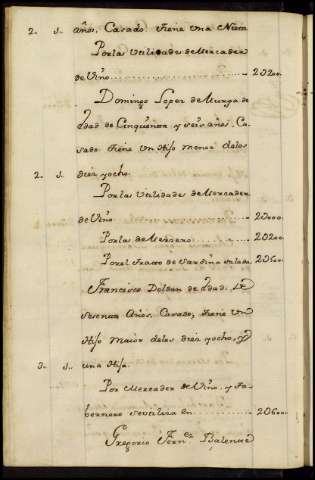 2. S. años, Casado tiene una Nieta
Por las Utilidades de Mercader
de Vino 2 0200
Domingo Lopez de Murga de
Edad de Cinquenta y seis años. Ca-
sado tiene un Hijo menor delos
2. S. diez y ocho.
Por las Utilidades de Mercader
de Vino 2 0000
Por las de Mesonero 2 0200
Por el tratto de Sardina salada 2 0600
Francisco Roldan de Edad de
Sesenta Años. Casado, tiene un
Hijo maior delos diez y ocho, y
3. S. una Hija.
Por Mercader de Vino y Ta-
bernero se utiliza en 2 0600
Gregorio Fernez